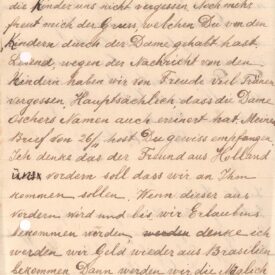 die Kinder uns nicht vergessen. Noch mehr
freut mich der Gruss, welchen Du von den
Kindern durch der Dame gehabt hast.
wegen der Nachricht von den
Kindern haben wir von Freude viel Tränen
vergossen. Hauptsächlich dass die Dame
Oschers Namen auch erinert hat. Meinen
Brief von 26/11 hast Du gewiss empfangen.
Ich denke das der Freund aus Holland
vordern soll dass wir an Ihm
kommen sollen. Wenn dieser aus
vordern wird und bis wir Erlaubnis
bekommen werden, denke ich
werden wir Geld wieder aus Brasilien
bekommen. Dann werden wir die Möglich